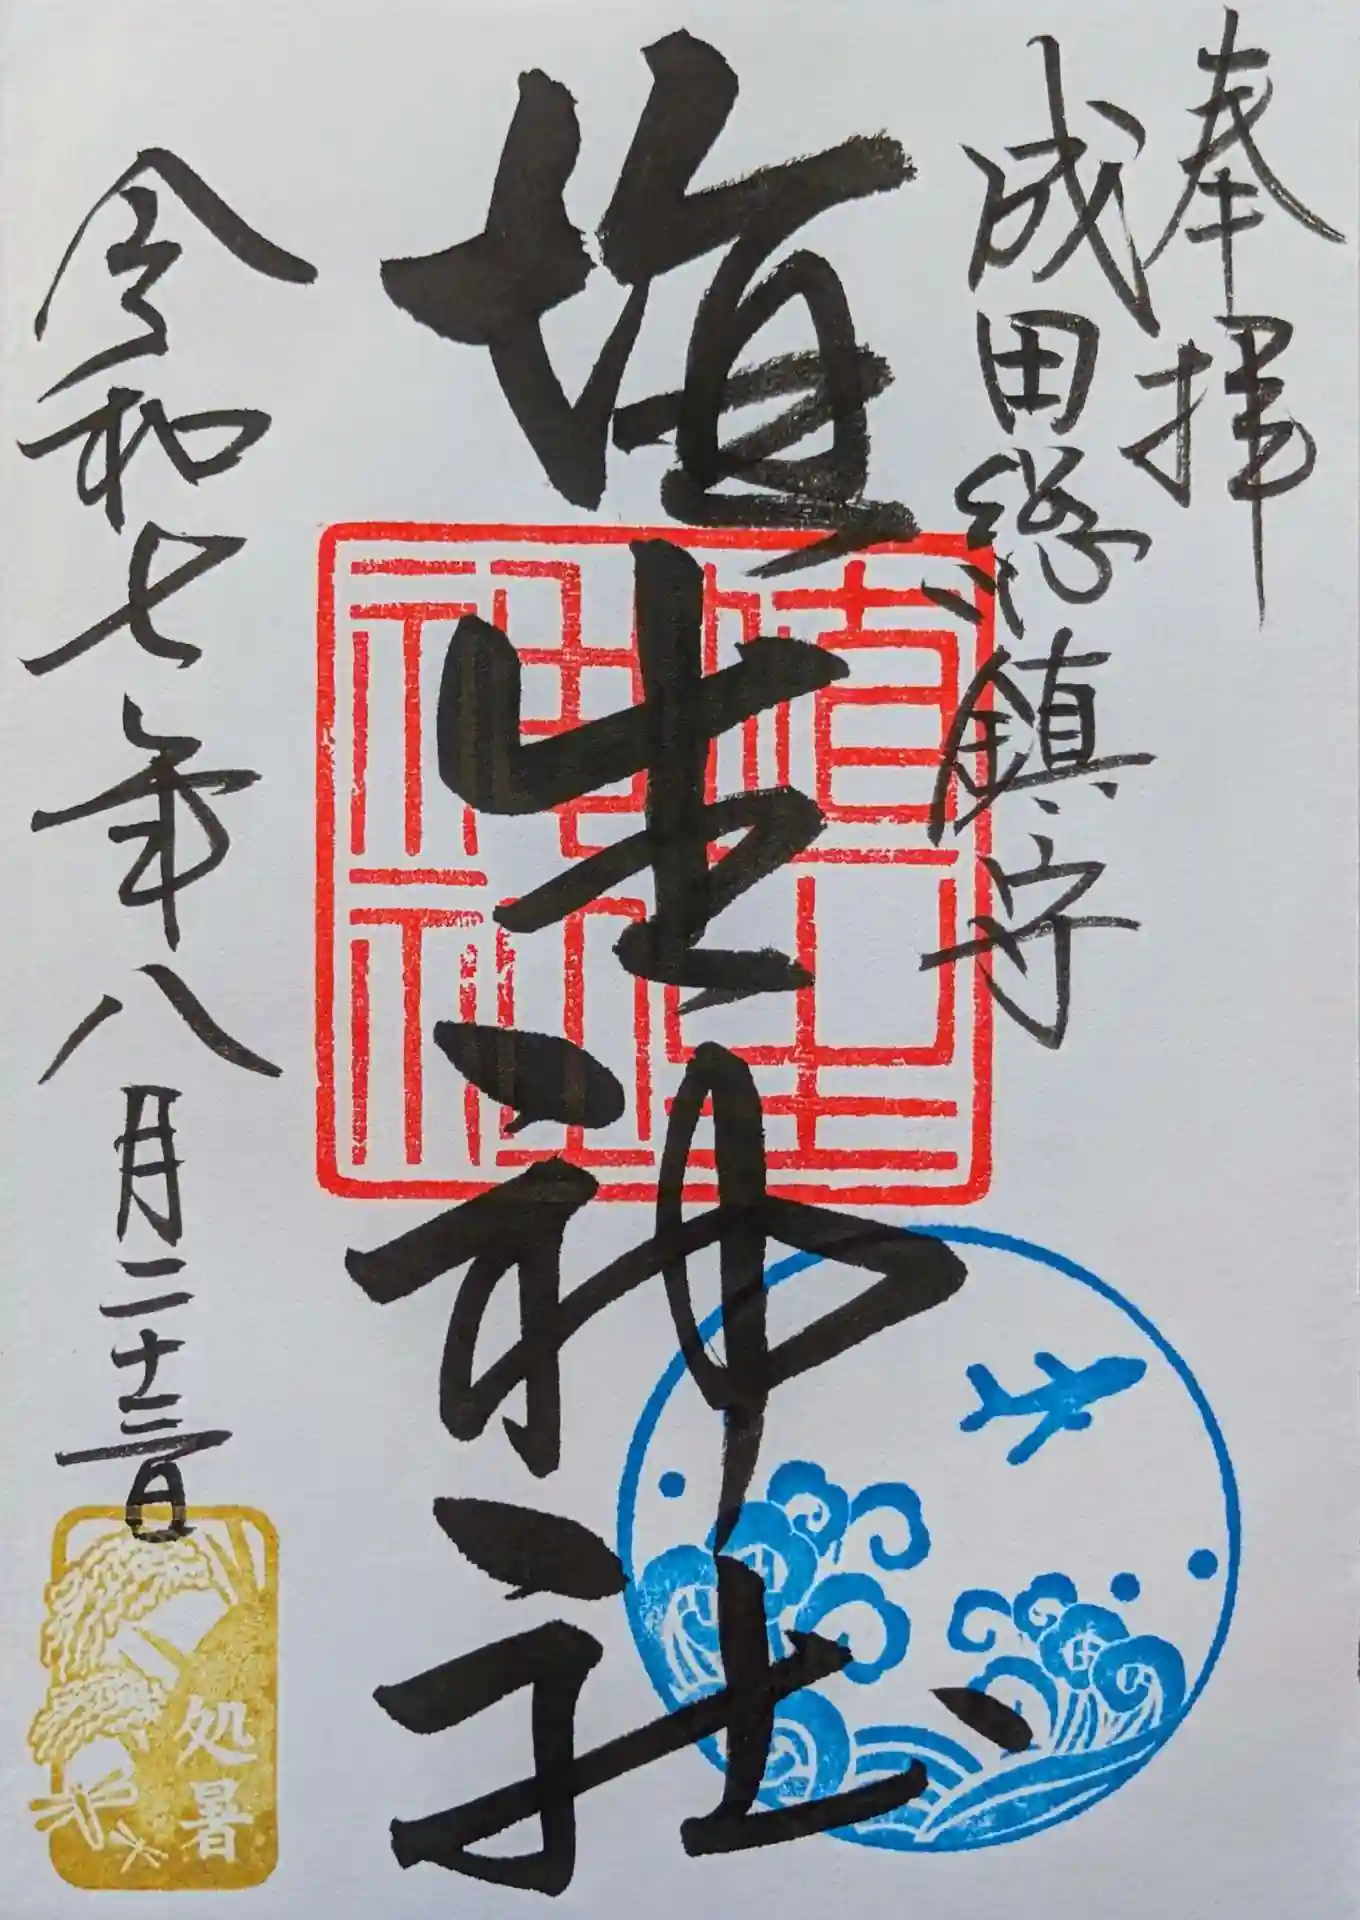 奉拝
成田総鎮守
埴生神社
埴生神社
令和七年八月二十三日
処暑